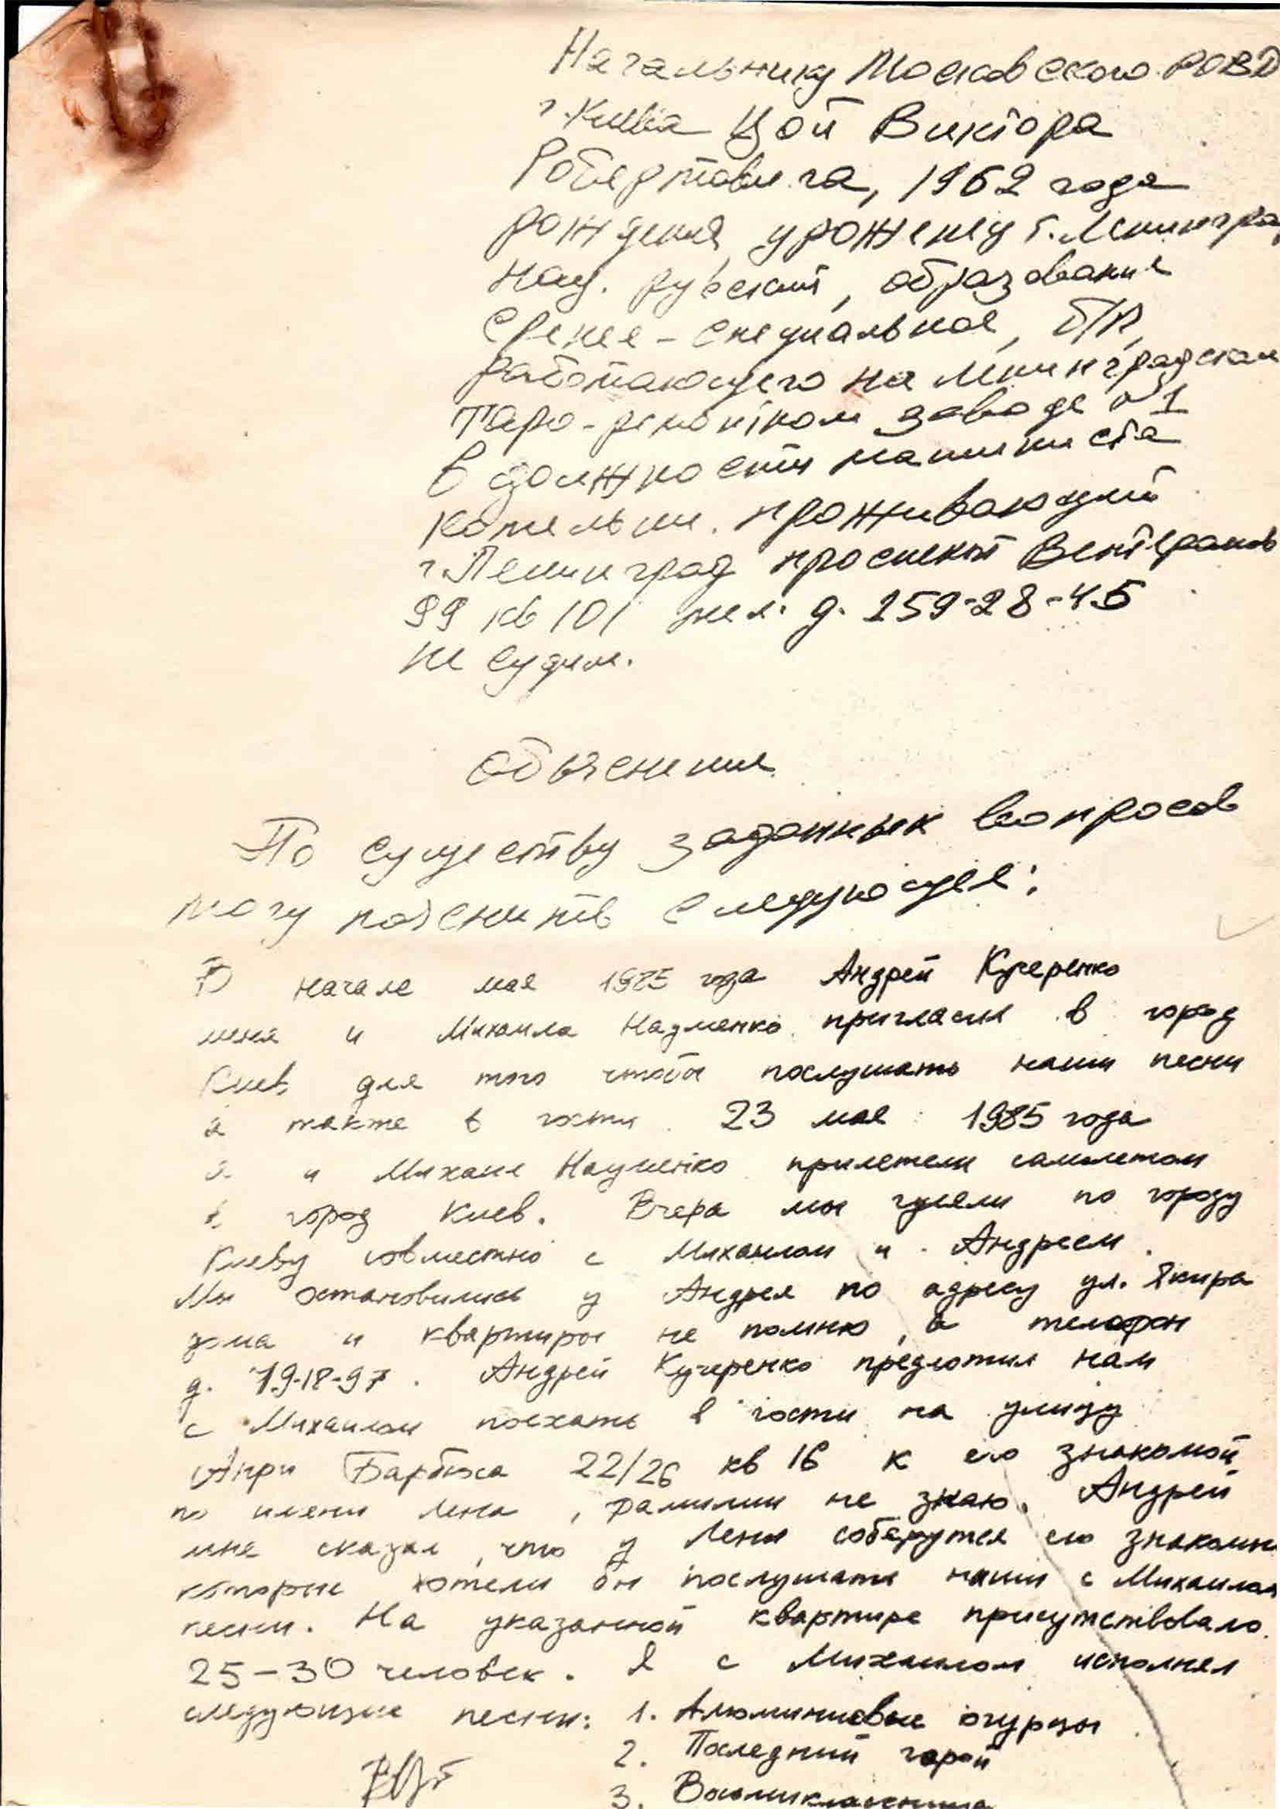 Начальнику Московского РОВД
г. Киева Цой Виктора
Робертовича, 1962 года
рождения, уроженец г. Ленингра
нац. русский, образование
средне-специальное, б/п,
работающего на Ленинградском
таро-ремонтном заводе №1
в должности машиниста
котельни. проживающий
г. Ленинград проспект Ветеранов
99 кв 101 тел. д. 159-28-45
не судим.
Объяснение
По существу заданных вопросов
могу пояснить следующее:
В начале мая 1985 года Андрей Кучеренко
меня и Михаила Науменко пригласил в город
Киев для того чтобы послушать наши песни
а также в гости. 23 мая 1985 года
я и Михаил Науменко прилетели самолетом
в город Киев. Вчера мы гуляли по городу
Киеву совместно с Михаилом и Андреем.
Мы остановились у Андрея по адресу ул. Якира
дома и квартиры не помню, а телефон
д. 19-18-97. Андрей Кучеренко предложил нам
с Михаилом поехать в гости на улицу
Анри Барбюса 22/26 кв 16 к его знакомой
по имени Лена, фамилии не знаю. Андрей
мне сказал, что у Лены соберутся его знакомы
которые хотели бы послушать наши с Михаилом
песни. На указанной квартире присутствовало
25-30 человек. Я с Михаилом исполнял
следующие песни: 1. Алюминиевые огурцы
2. Последний герой
3. Восьмиклассница